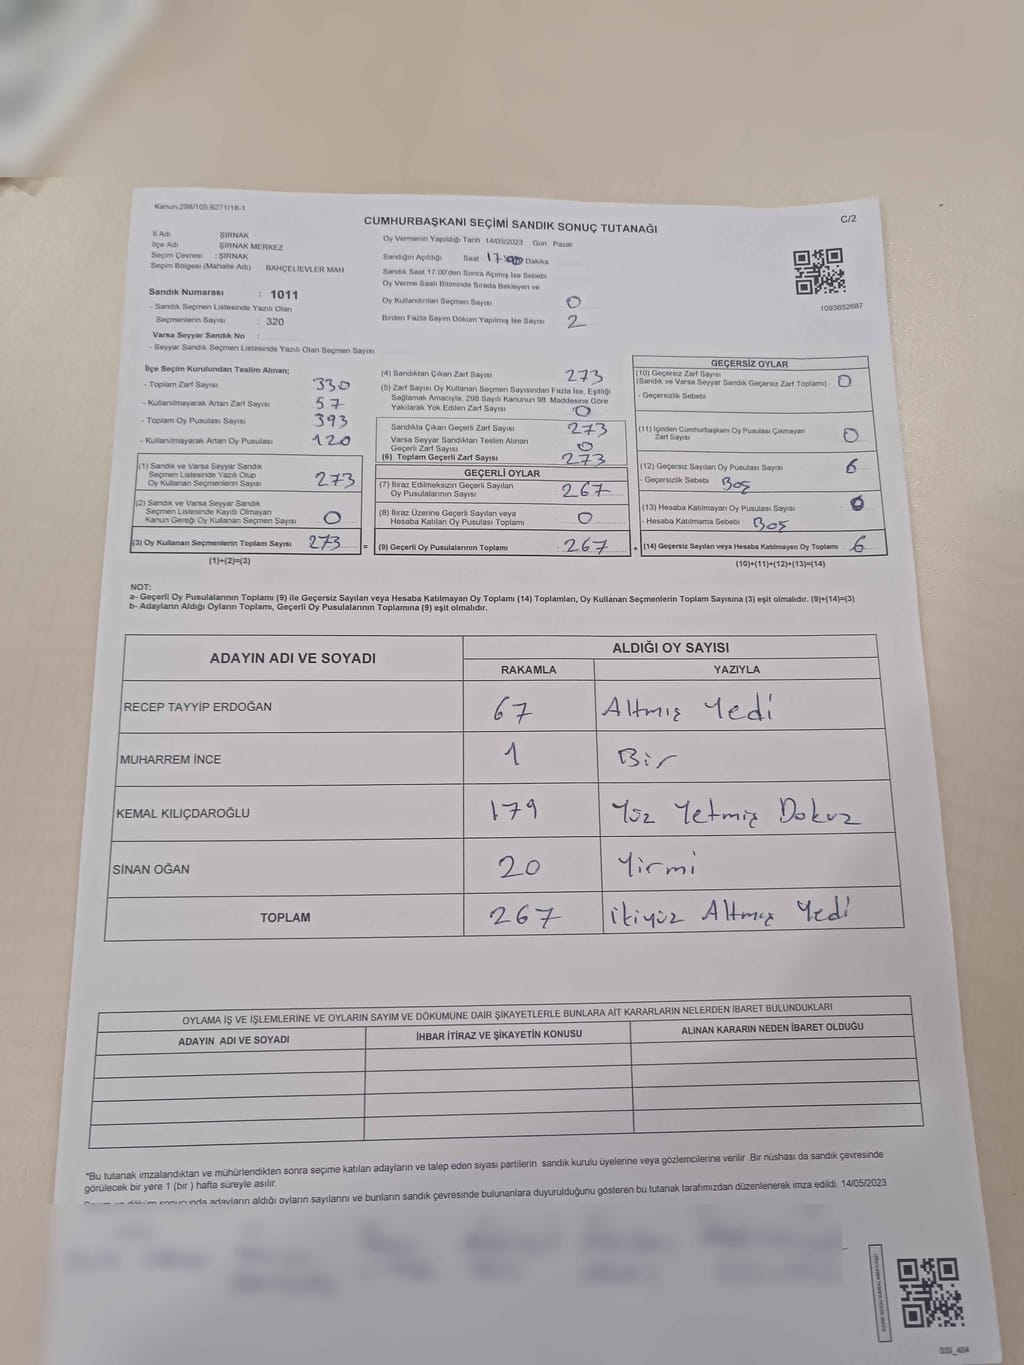 Kanun:298/105,6271/18-1
C/2
CUMHURBAŞKANI SEÇİMİ SANDIK SONUÇ TUTANAĞI
İl Adı ŞIRNAK
İlçe Adı ŞIRNAK MERKEZ
Seçim Çevresi : ŞIRNAK
Seçim Bölgesi (Mahalle Adı) BAHÇELİEVLER MAH
Sandık Numarası : 1011
- Sandık Seçmen Listesinde Yazılı Olan
Seçmenlerin Sayısı : 320
Varsa Seyyar Sandık No :
- Seyyar Sandık Seçmen Listesinde Yazılı Olan Seçmen Sayısı
Oy Vermenin Yapıldığı Tarih 14/05/2023 Gün Pazar
Sandığın Açıldığı Saat 17 Dakika
Sandık Saat 17:00'den Sonra Açılmış İse Sebebi
Oy Verme Saati Bitiminde Sırada Bekleyen ve
Oy Kullandırılan Seçmen Sayısı 0
Birden Fazla Sayım Döküm Yapılmış İse Sayısı 2
1093852687
İlçe Seçim Kurulundan Teslim Alınan;
- Toplam Zarf Sayısı 330
- Kullanılmayarak Artan Zarf Sayısı 57
- Toplam Oy Pusulası Sayısı 393
- Kullanılmayarak Artan Oy Pusulası 120
(1) Sandık ve Varsa Seyyar Sandık
Seçmen Listesinde Yazılı Olup
Oy Kullanan Seçmenlerin Sayısı 273
(2) Sandık ve Varsa Seyyar Sandık
Seçmen Listesinde Kayıtlı Olmayan
Kanun Gereği Oy Kullanan Seçmen Sayısı 0
(3) Oy Kullanan Seçmenlerin Toplam Sayısı 273 =
(1)+(2)=(3)
(4) Sandıktan Çıkan Zarf Sayısı 273
(5) Zarf Sayısı Oy Kullanan Seçmen Sayısından Fazla İse, Eşitliği
Sağlamak Amacıyla, 298 Sayılı Kanunun 98. Maddesine Göre
Yakılarak Yok Edilen Zarf Sayısı 0
Sandıkta Çıkan Geçerli Zarf Sayısı 273
Varsa Seyyar Sandıktan Teslim Alınan
Geçerli Zarf Sayısı 0
(6) Toplam Geçerli Zarf Sayısı 273
GEÇERLİ OYLAR
(7) İtiraz Edilmeksizin Geçerli Sayılan
Oy Pusulalarının Sayısı 267
(8) İtiraz Üzerine Geçerli Sayılan veya
Hesaba Katılan Oy Pusulası Toplamı 0
(9) Geçerli Oy Pusulalarının Toplamı : 267 +
GEÇERSİZ OYLAR
(10) Geçersiz Zarf Sayısı
(Sandık ve Varsa Seyyar Sandık Geçersiz Zarf Toplamı) 0
- Geçersizlik Sebebi
(11) İçinden Cumhurbaşkanı Oy Pusulası Çıkmayan
Zarf Sayısı 0
(12) Geçersiz Sayılan Oy Pusulası Sayısı 6
- Geçersizlik Sebebi Boş
(13) Hesaba Katılmayan Oy Pusulası Sayısı
- Hesaba Katılmama Sebebi Boş
(14) Geçersiz Sayılan veya Hesaba Katılmayan Oy Toplamı : 6
(10)+(11)+(12)+(13)=(14)
NOT:
a- Geçerli Oy Pusulalarının Toplamı (9) ile Geçersiz Sayılan veya Hesaba Katılmayan Oy Toplamı (14) Toplamları, Oy Kullanan Seçmenlerin Toplam Sayısına (3) eşit olmalıdır. (9)+(14)=(3)
b- Adayların Aldığı Oyların Toplamı, Geçerli Oy Pusulalarının Toplamına (9) eşit olmalıdır.
ADAYIN ADI VE SOYADI ALDIĞI OY SAYISI
RAKAMLA YAZIYLA
RECEP TAYYİP ERDOĞAN 67 Altmış Yedi
MUHARREM İNCE 1 Bir
KEMAL KILIÇDAROĞLU 179 Yüz Yetmiş Dokuz
SİNAN OĞAN 20 Yirmi
TOPLAM 267 İkiyüz Altmış Yedi
OYLAMA İŞ VE İŞLEMLERİNE VE OYLARIN SAYIM VE DÖKÜMÜNE DAİR ŞİKAYETLERLE BUNLARA AİT KARARLARIN NELERDEN İBARET BULUNDUKLARI
ADAYIN ADI VE SOYADI İHBAR İTİRAZ VE ŞİKAYETİN KONUSU ALINAN KARARIN NEDEN İBARET OLDUĞU
*Bu tutanak imzalandıktan ve mühürlendikten sonra seçime katılan adayların ve talep eden siyasi partilerin sandık kurulu üyelerine veya gözlemcilerine verilir .Bir nüshası da sandık çevresinde
görülecek bir yere 1 (bir ) hafta süreyle asılır.
döküm sonucunda adayların aldığı oyların sayılarını ve bunların sandık çevresinde bulunanlara duyurulduğunu gösteren bu tutanak tarafımızdan düzenlenerek imza edildi. 14/05/2023
SSİ_404